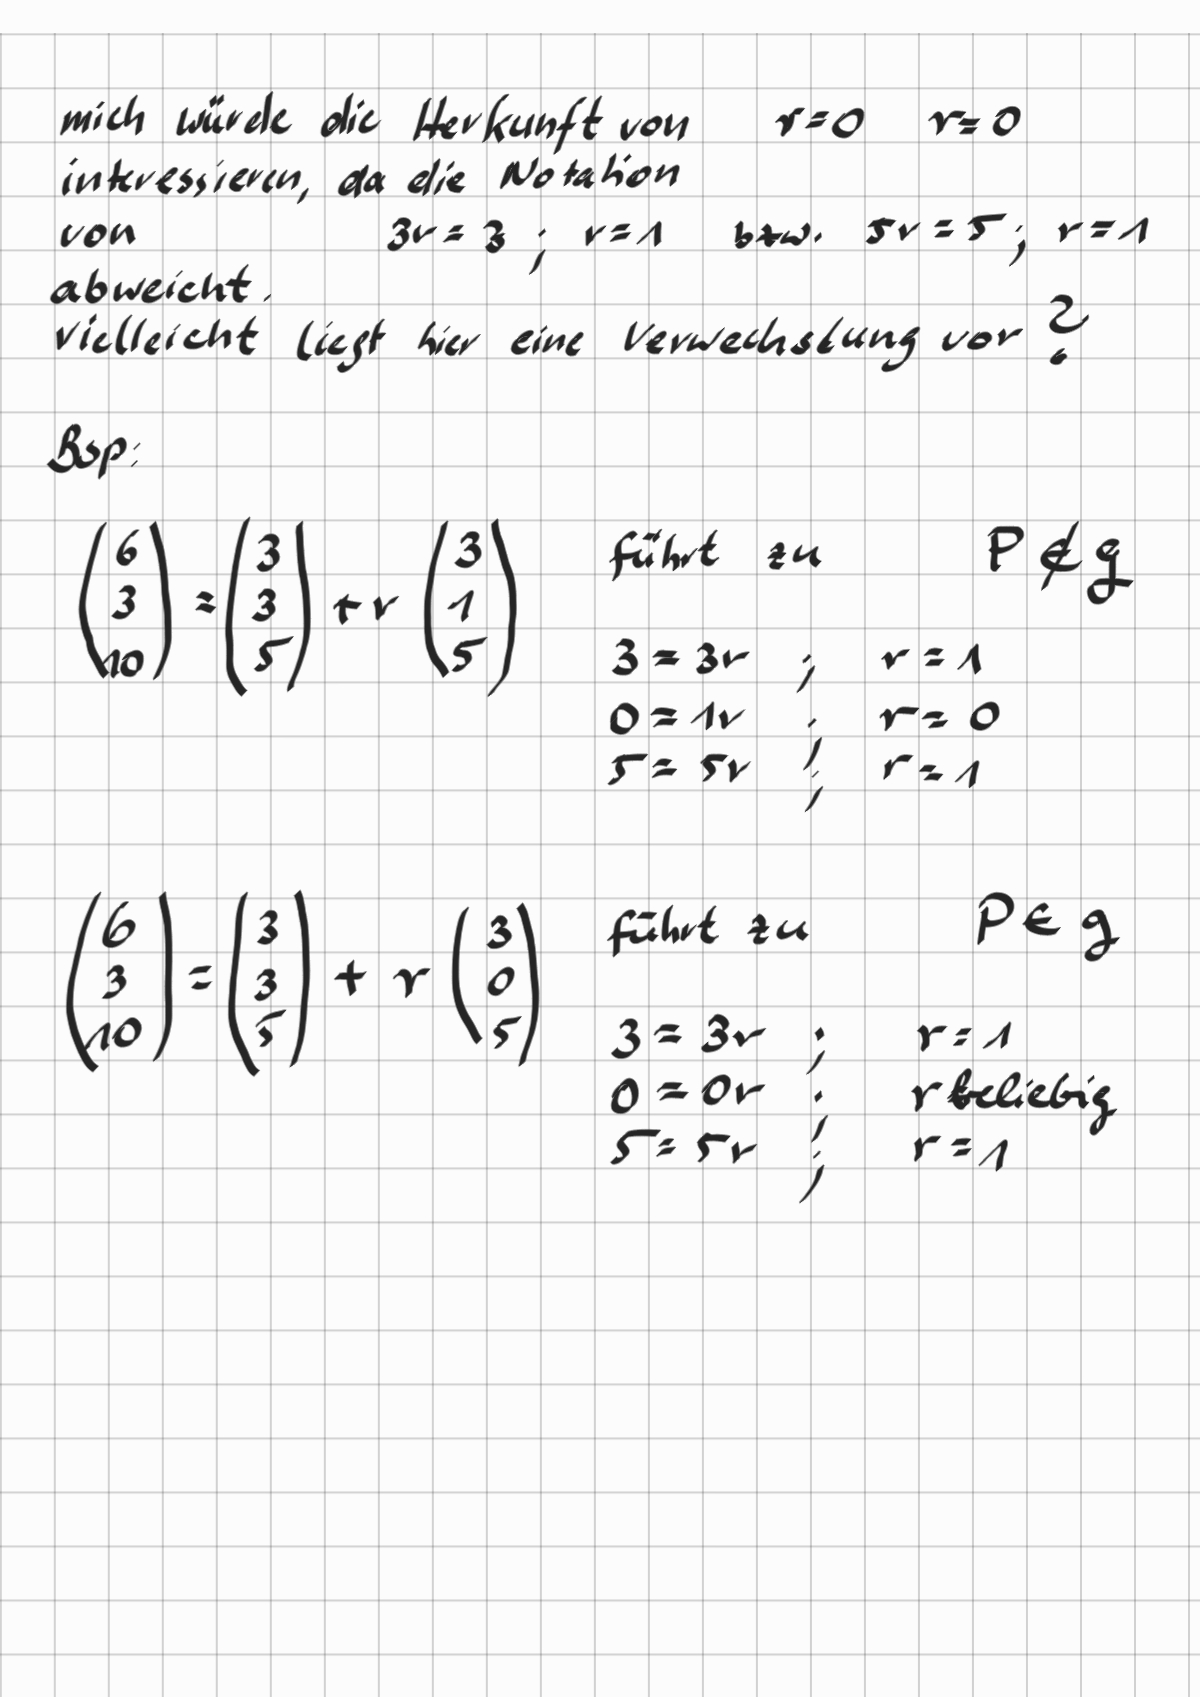 mich würde die Herkunft von r=0 r=0
interessieren, da die Notation
von 3r = 3 ; r = 1 bzw. 5r = 5 ; r = 1
abweicht.
vielleicht liegt hier eine Verwechslung vor ?
Bsp:
(6 3 10) = (3 3 5) + r (3 1 5) führt zu P ∉ g
3 = 3r ; r = 1
0 = 1r ; r = 0
5 = 5r ; r = 1
(6 3 10) = (3 3 5) + r (3 0 5) führt zu P ∈ g
3 = 3r ; r = 1
0 = 0r ; r beliebig
5 = 5r ; r = 1